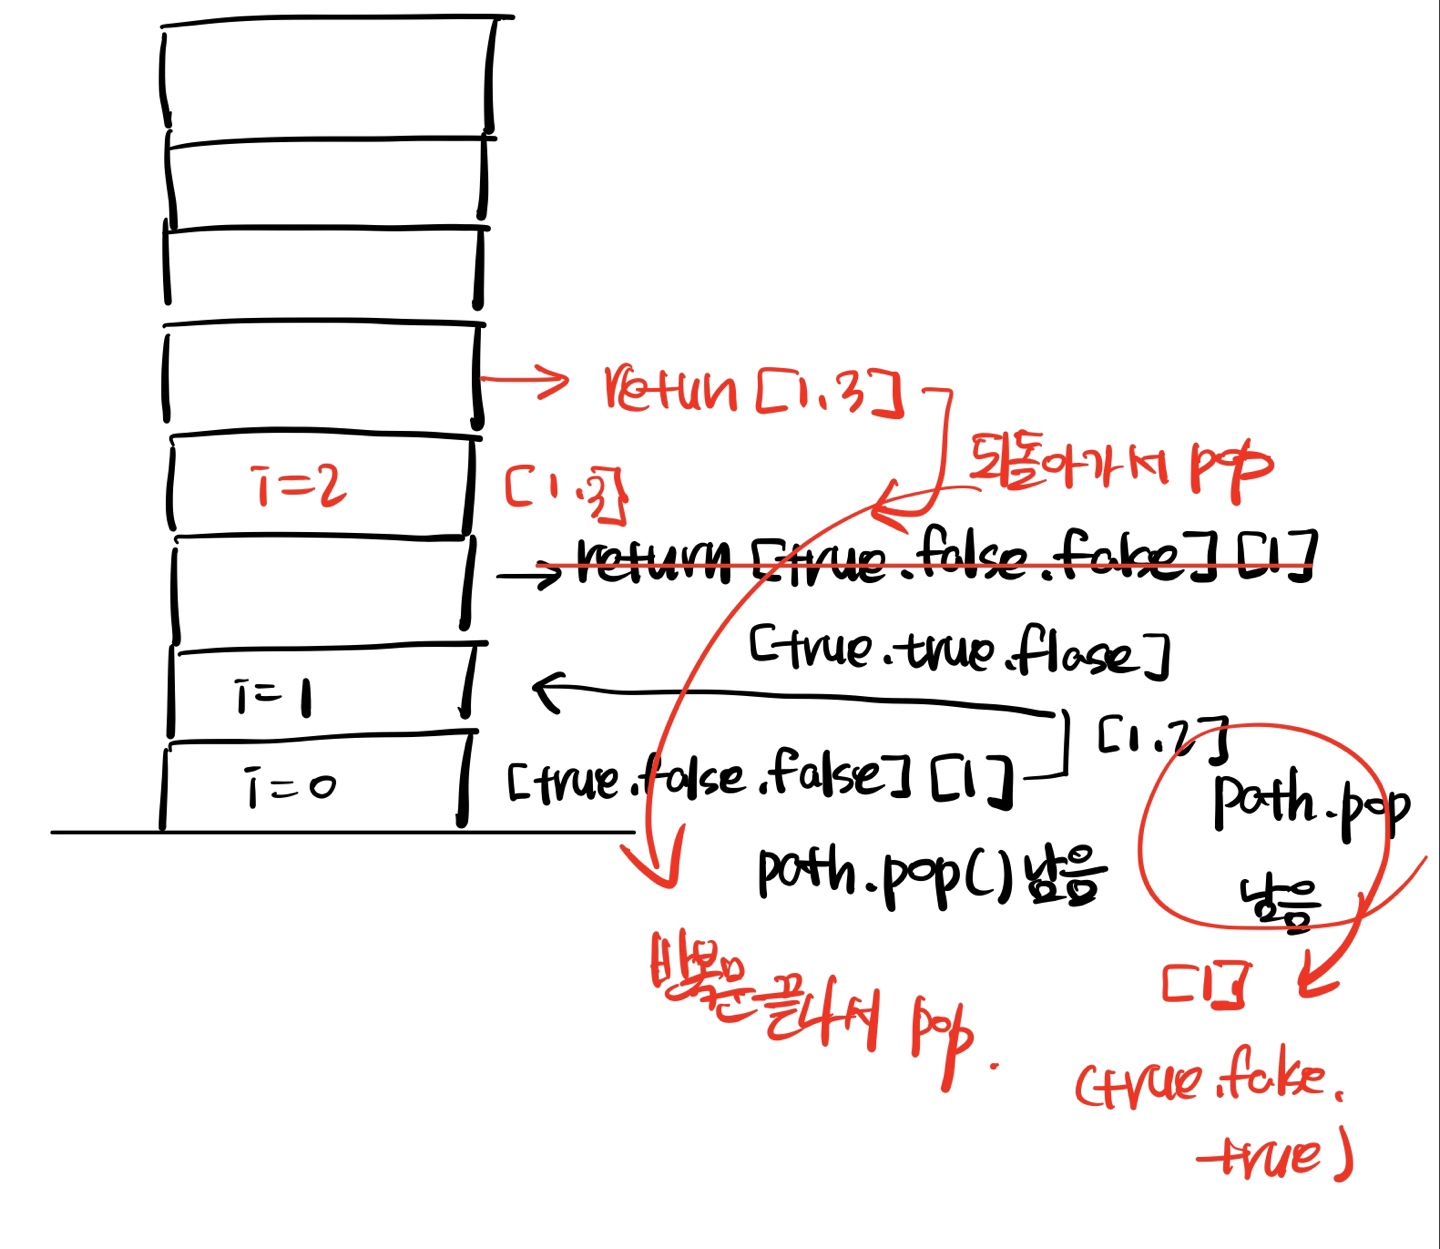 retun [1.3]
되돌아가서 pop
i=2 [1.3]
return [true.false.false] [1]
[true.true.flase]
i=1
[1.2]
i=0 [true.false.false] [1]
path.pop
path.pop() 남음
남음
반복문 끝나서 pop.
[1]
(true.false.
true)